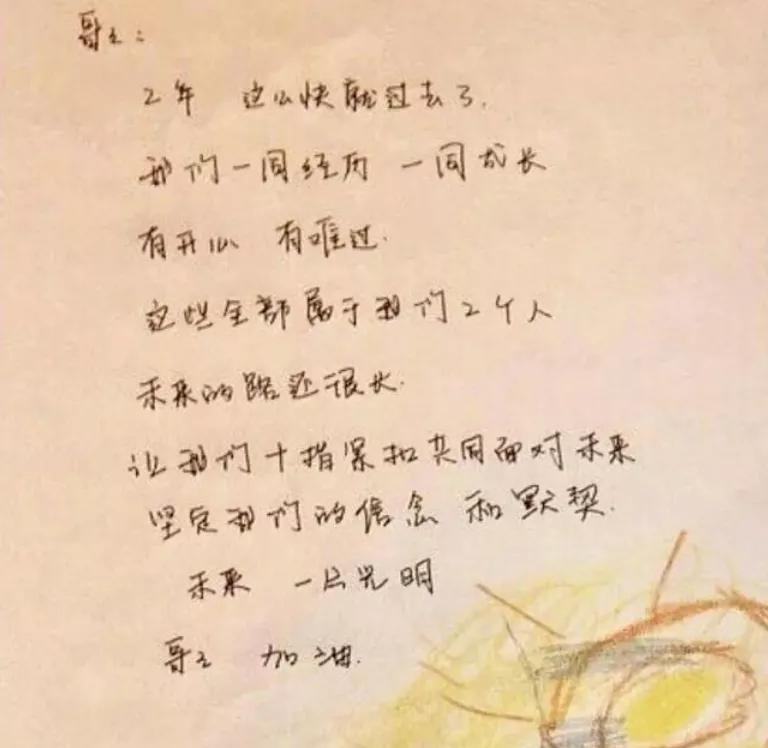 哥哥：
2年 这么快就过去了.
我们一同经历 一同成长
有开心 有难过.
这些全部属于我们2个人
未来的路还很长.
让我们十指紧扣共同面对未来
坚定我们的信念 和默契.
未来 一片光明
哥哥 加油.